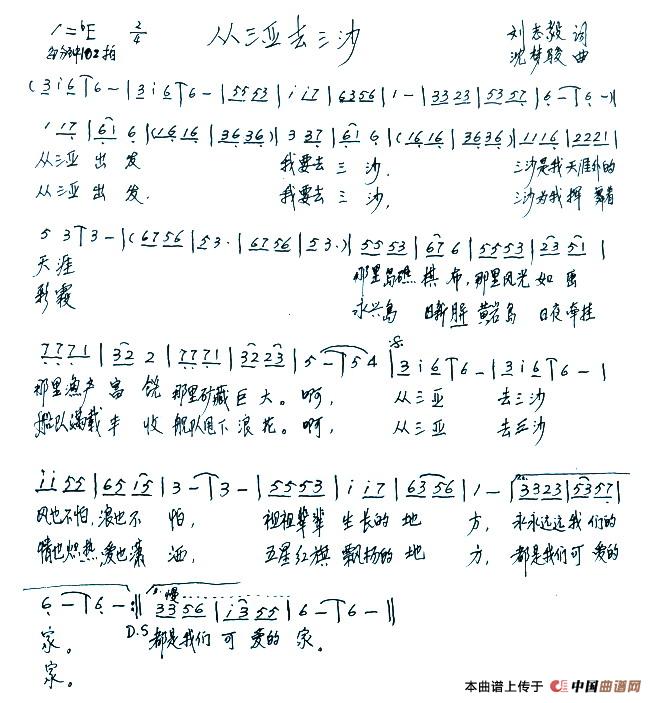 从三亚去三沙
1=♭E 2/4
刘志毅 词
每分钟102拍
沈梦骏 曲
(3 i 6 | 6 - | 3 i 6 | 6 - | 55 53 | i i7 | 63 56 | 1 - | 33 23 | 53 57 | 6 - | 6 - |)
1 17 | 61 6 | (16 16 | 36 36) | 3 37 | 61 6 | (16 16 | 36 36) | 11 16 | 22 21 |
从三亚 出 发 我要去 三 沙. 三沙是我 天涯外的
从三亚 出 发. 我要去 三 沙, 三沙为我 挥舞着
5 3 | 3 - | (67 56 | 53· | 67 56 | 53·) | 55 53 | 67 6 | 55 53 | 23 51 |
天涯 那里岛礁 棋 布, 那里风光 如 画
彩霞 永兴岛 日新月异 黄岩岛 日夜牵挂
77 71 | 32 2 | 77 71 | 32 23 | 5 - | 5 4 | 3 i 6 | 6 - | 3 i 6 | 6 - |
那里渔产 富 饶 那里矿藏 巨 大。 啊, 从三亚 去三沙
船队满载 丰 收 舰队甩下 浪 花。 啊, 从三亚 去三沙
ii 55 | 65 i5 | 3 - | 3 - | 55 53 | i i7 | 63 56 | 1 - | 33 23 | 53 57 |
风也不怕, 浪也不 怕, 祖祖辈辈 生长的 地 方, 永永远远 我们的
情也炽热, 爱也潇 洒, 五星红旗 飘扬的 地 方, 都是我们 可 爱的
6 - | 6 - :|| 33 56 | i3 55 | 6 - | 6 - ||
慢
家。 D.S 都是我们 可 爱的 家.
家。
本曲谱上传于 中国曲谱网